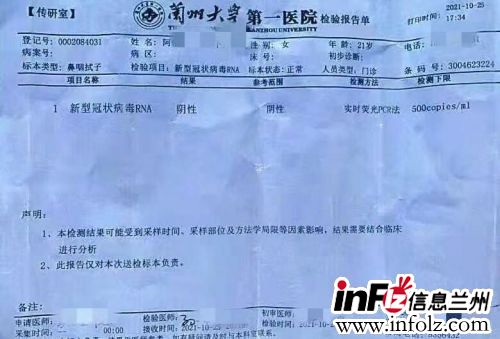 【传研室】 兰州大学第一医院 检验报告单 2021-10-25
打印时间: 17:34
登记号: 0002084031 姓 名: 阿 性 别: 女 年 龄: 21岁
病案号: 病 区: 床 号: 初步诊断:
标本类型: 鼻咽拭子 检验项目: 新型冠状病毒RNA 标本状态: 正常 人员类型: 门诊 条 码 号: 3004623224
项目名称 结果 参考范围 检测方法 检测下限
1 新型冠状病毒RNA 阴性 阴性 实时荧光PCR法 500copies/ml
声明:
1、本检测结果可能受到采样时间、采样部位及方法学局限等因素影响，结果需要结合临床
进行分析
2、此报告仅对本次送检标本负责。
备注:
申请医师: 检验医师: 初审医师:
采集时间: 00:00 接收时间: 2021-10-25
infLz 信息兰州
www.infolz.com